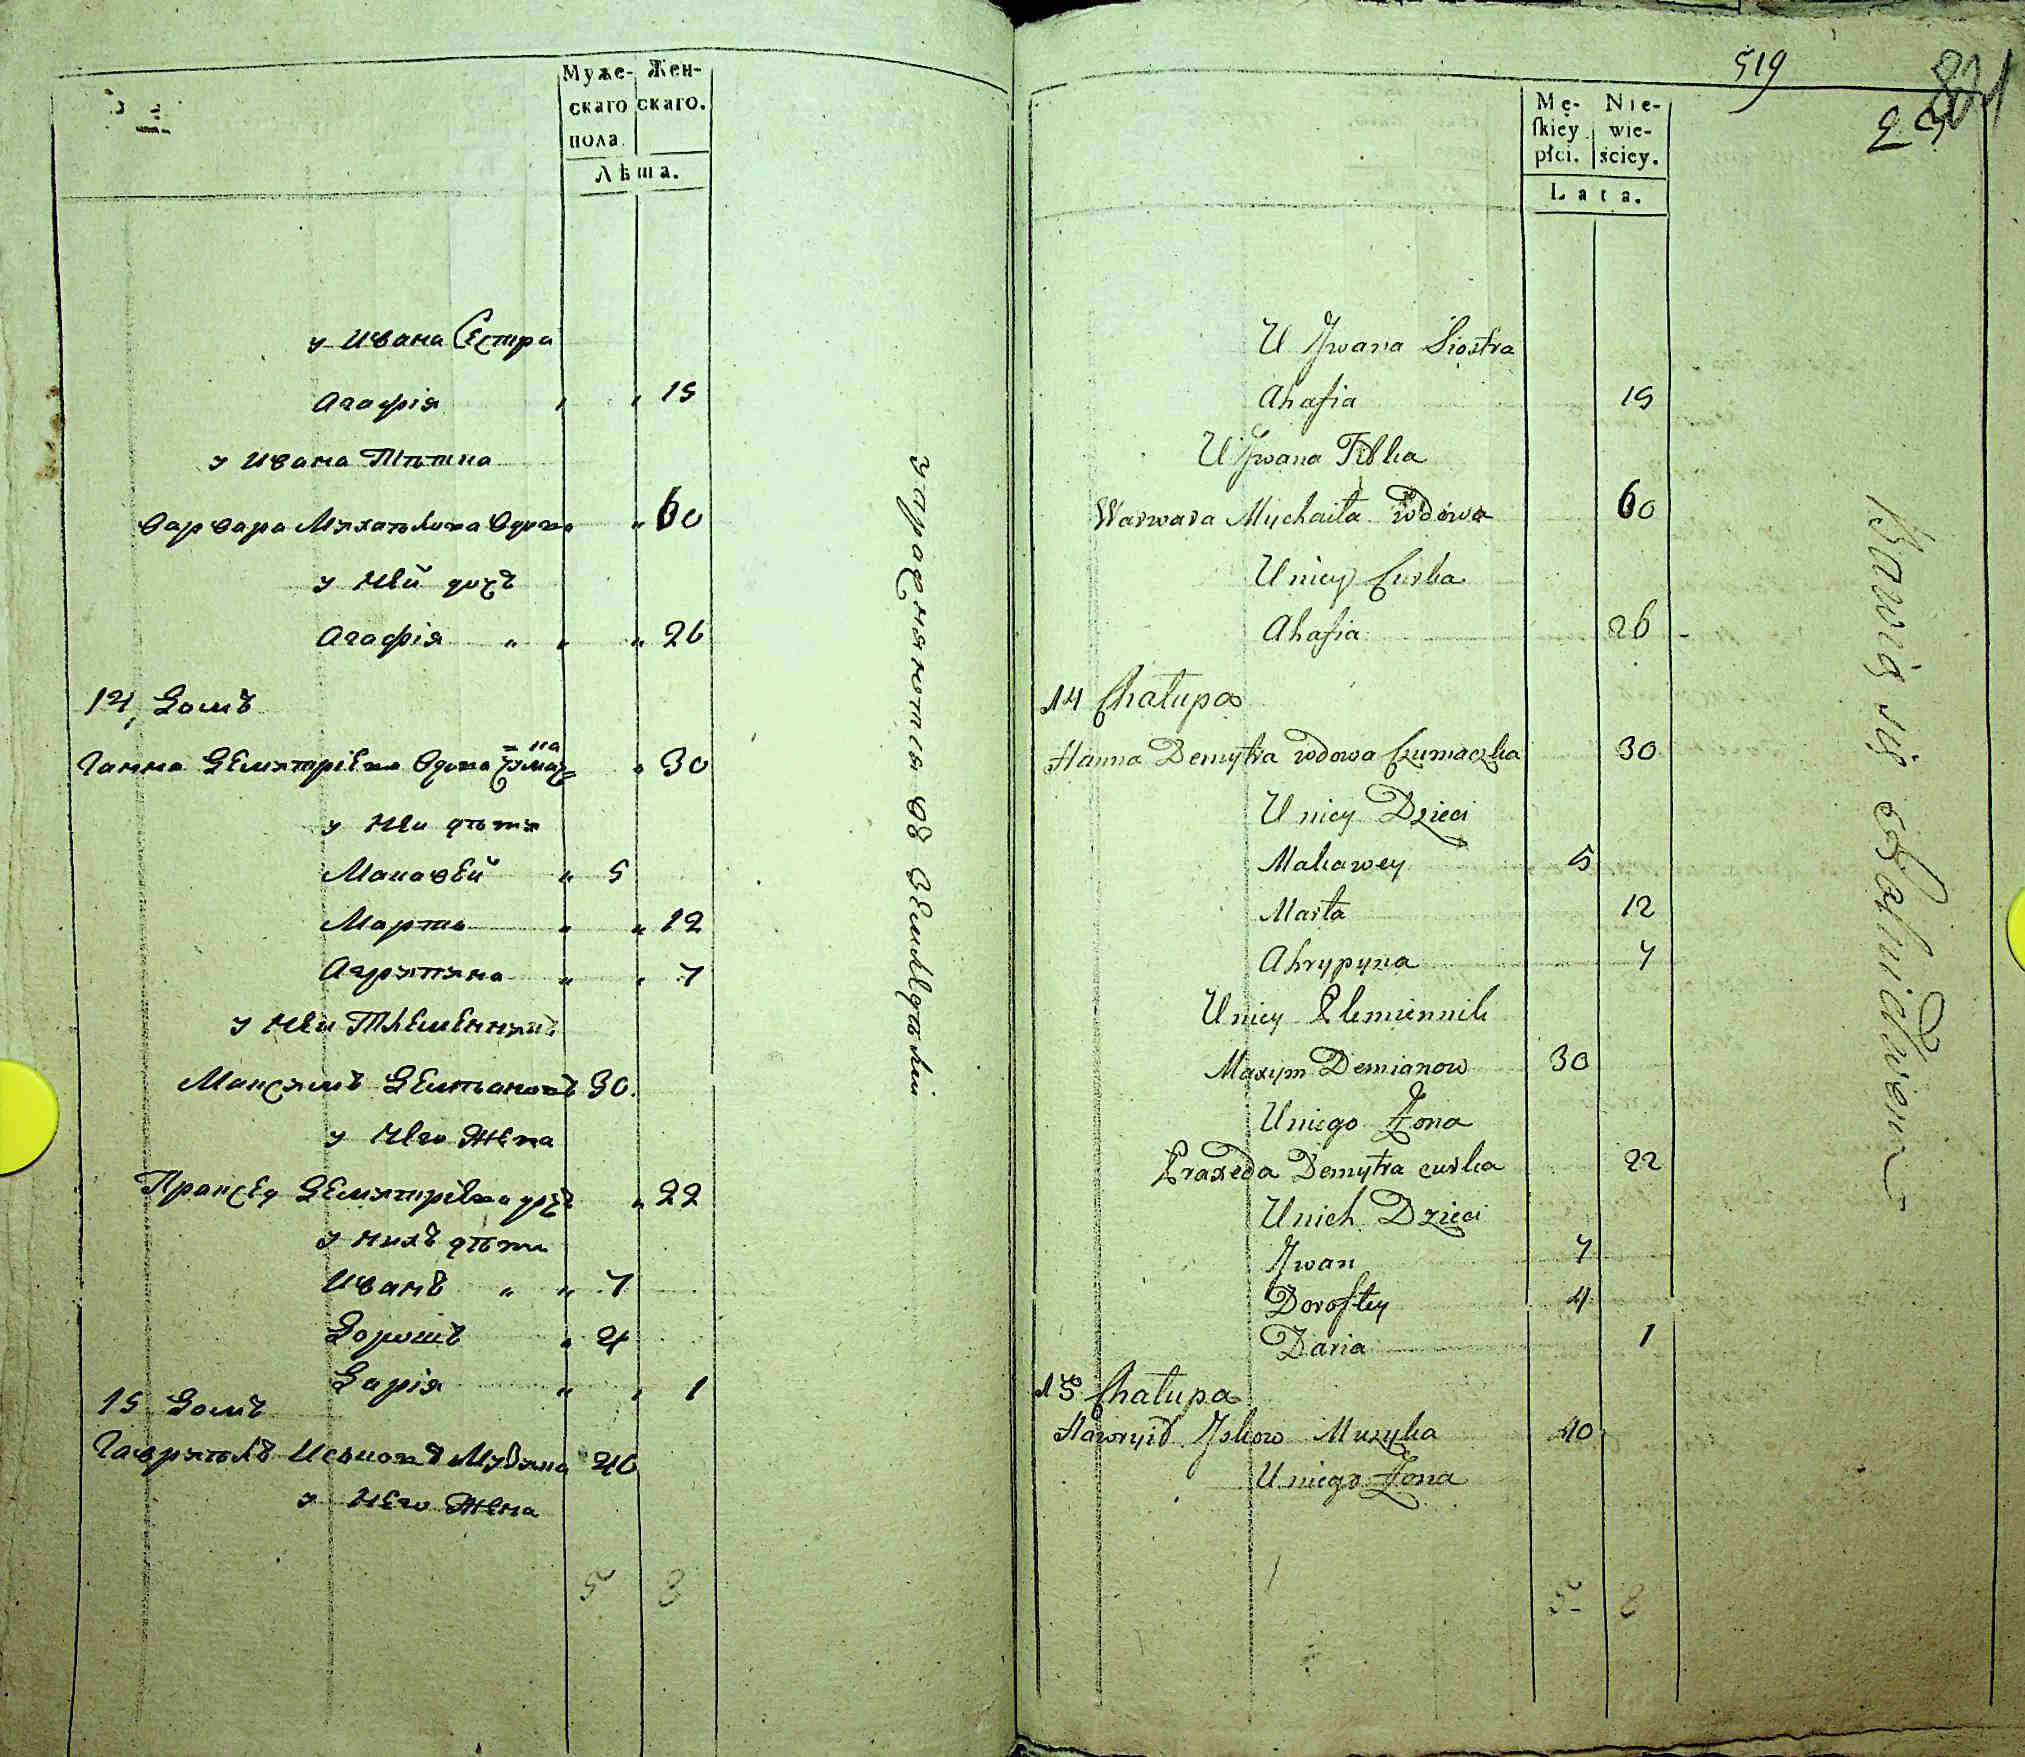 Муже- Жен-
скаго скаго.
пола
Лѣта.
у Ивана Сестра
Агафія " " 15
у Ивана Тѣтка
Варвара Михаѣлова Вдова " 60
у Ней дочъ
Агафія " " " 26
14 Домъ
Ганна Демитріева Вдова Чумач=
=ка
" 30
у Ней дѣти
Макавей " 5
Марта " " 12
Агрипина " " 7
у Ней Племенникъ
Максимъ Демьяновъ 30.
у Него Жена
Праксед Демитріева дочъ " 22
у нихъ дѣти
Иванъ " " 7
Дорошъ " 4
Дарія " " 1
15 Домъ
Гавриилъ Иськовъ Музика 40
у Него Жена
5 8
упражняются въ Земледѣліи
519
821
25
Mę- Nie-
skiey wie-
płci. ściey.
Lata.
U Jwana Siostra
Ahafia 15
U Jwana Titka
Warwara Mychaiła wdowa 60
U niey Curka
Ahafia 26
14 Chałupa
Hanna Demytra wdowa Czumaczka 30
U niey Dzieci
Makawey 5
Marta 12
Ahrypyna 7
U niey Plemiennik
Maxym Demianow 30
U niego Żona
Praxeda Demytra curka 22
U nich Dzieci
Jwan 7
Doroftey 4
Daria 1
15 Chałupa
Hawryił Jskow Muzyka 40
U niego Żona
5 8
Bawią się Rolnictwem